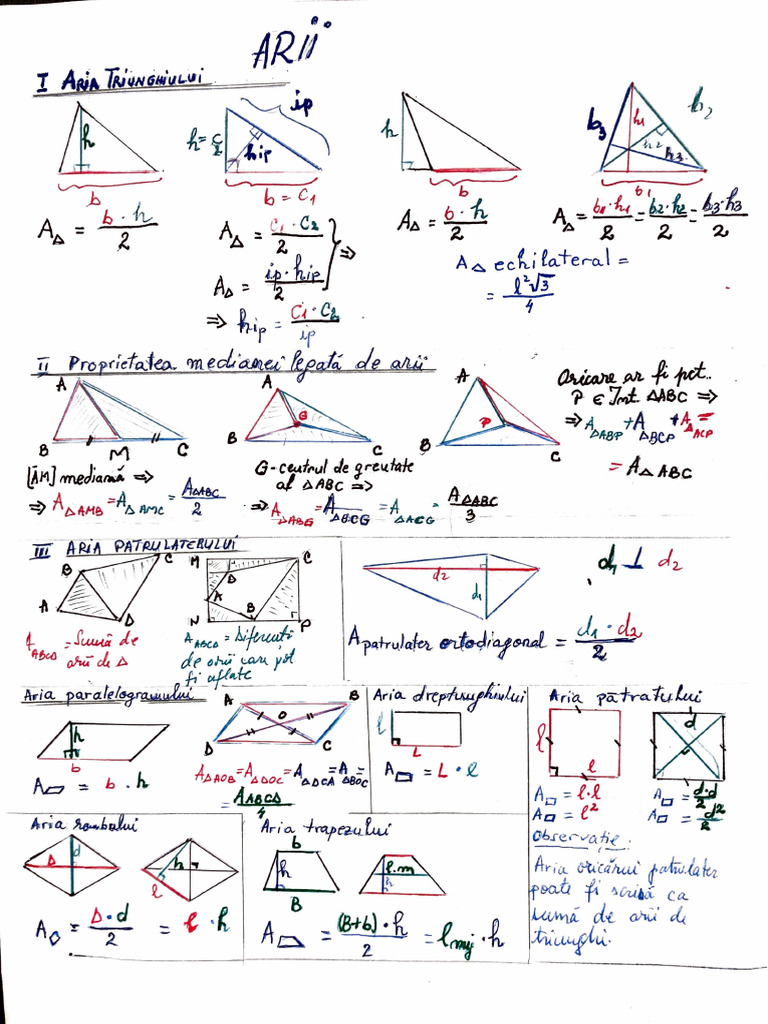 ARii
I ARIA TRIUNGHIULUI
h
b
A△ = b·h/2
h = c2
hip
ip
b = C1
A△ = C1·C2/2
A△ = ip·hip/2
⇒
⇒ hip = C1·C2/ip
h
b
A△ = b·h/2
b3 h1 h2 h3 b2
b1
A△ = b1·h1/2 = b2·h2/2 = b3·h3/2
A△ echilateral =
= l²√3/4
II Proprietatea medianei legată de arii
A
B M C
[AM] mediană ⇒
⇒ A△AMB = A△AMC = A△ABC/2
A
G
B C
G-centrul de greutate
al △ABC ⇒
⇒ A△ABG = A△BCG = A△ACG = A△ABC/3
A
P
B C
Oricare ar fi pct.
P ∈ Int. △ABC ⇒
⇒ A△ABP + A△BCP + A△ACP =
= A△ABC
III ARIA PATRULATERULUI
B C
A D
AABCD = Sumă de
arii de △
M C
D
A
N B P
AABCD = Diferență
de arii care pot
fi aflate
d2
d1
d1 ⊥ d2
Apatrulater ortodiagonal = d1·d2/2
Aria paralelogramului
h
b
A▱ = b·h
A B
O
D C
A△AOB = A△DOC = A△DCA = A△BOC =
AABCD/4
Aria dreptunghiului
l
L
A▭ = L·l
Aria pătratului
l
l
A□ = l·l
A□ = l²
d
A□ = d·d/2
A□ = d²/2
Observație:
Aria oricărui patrulater
poate fi scrisă ca
sumă de arii de
triunghi.
Aria rombului
D d
h
l
A◇ = D·d/2 = l·h
Aria trapezului
b
h
B
l.m
h
A = (B+b)·h/2 = lmij·h